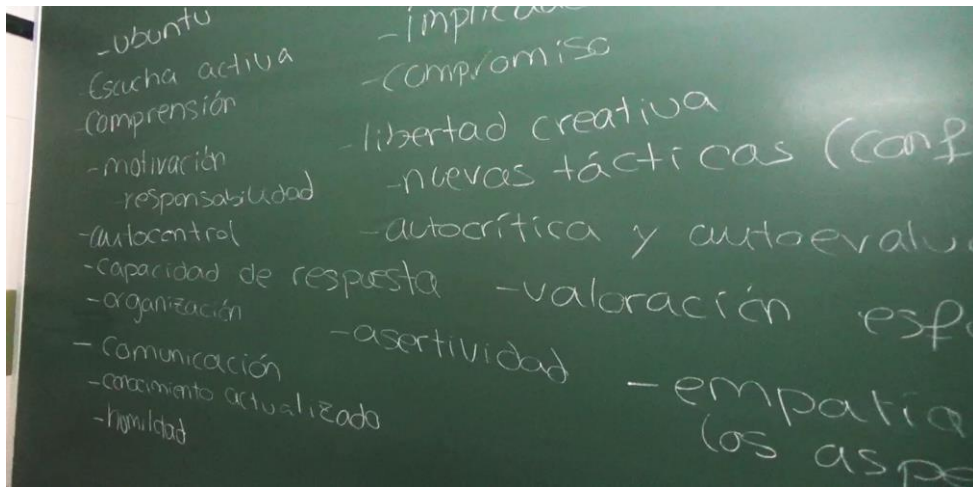 -ubuntu
Escucha activa
-comprensión
-motivación
responsabilidad
-autocontrol
-capacidad de respuesta
-organización
-comunicación
-conocimiento actualizado
-humildad
-compromiso
-libertad creativa
-nuevas tácticas
-autocrítica y
-valoración
-asertividad
-empatía
los